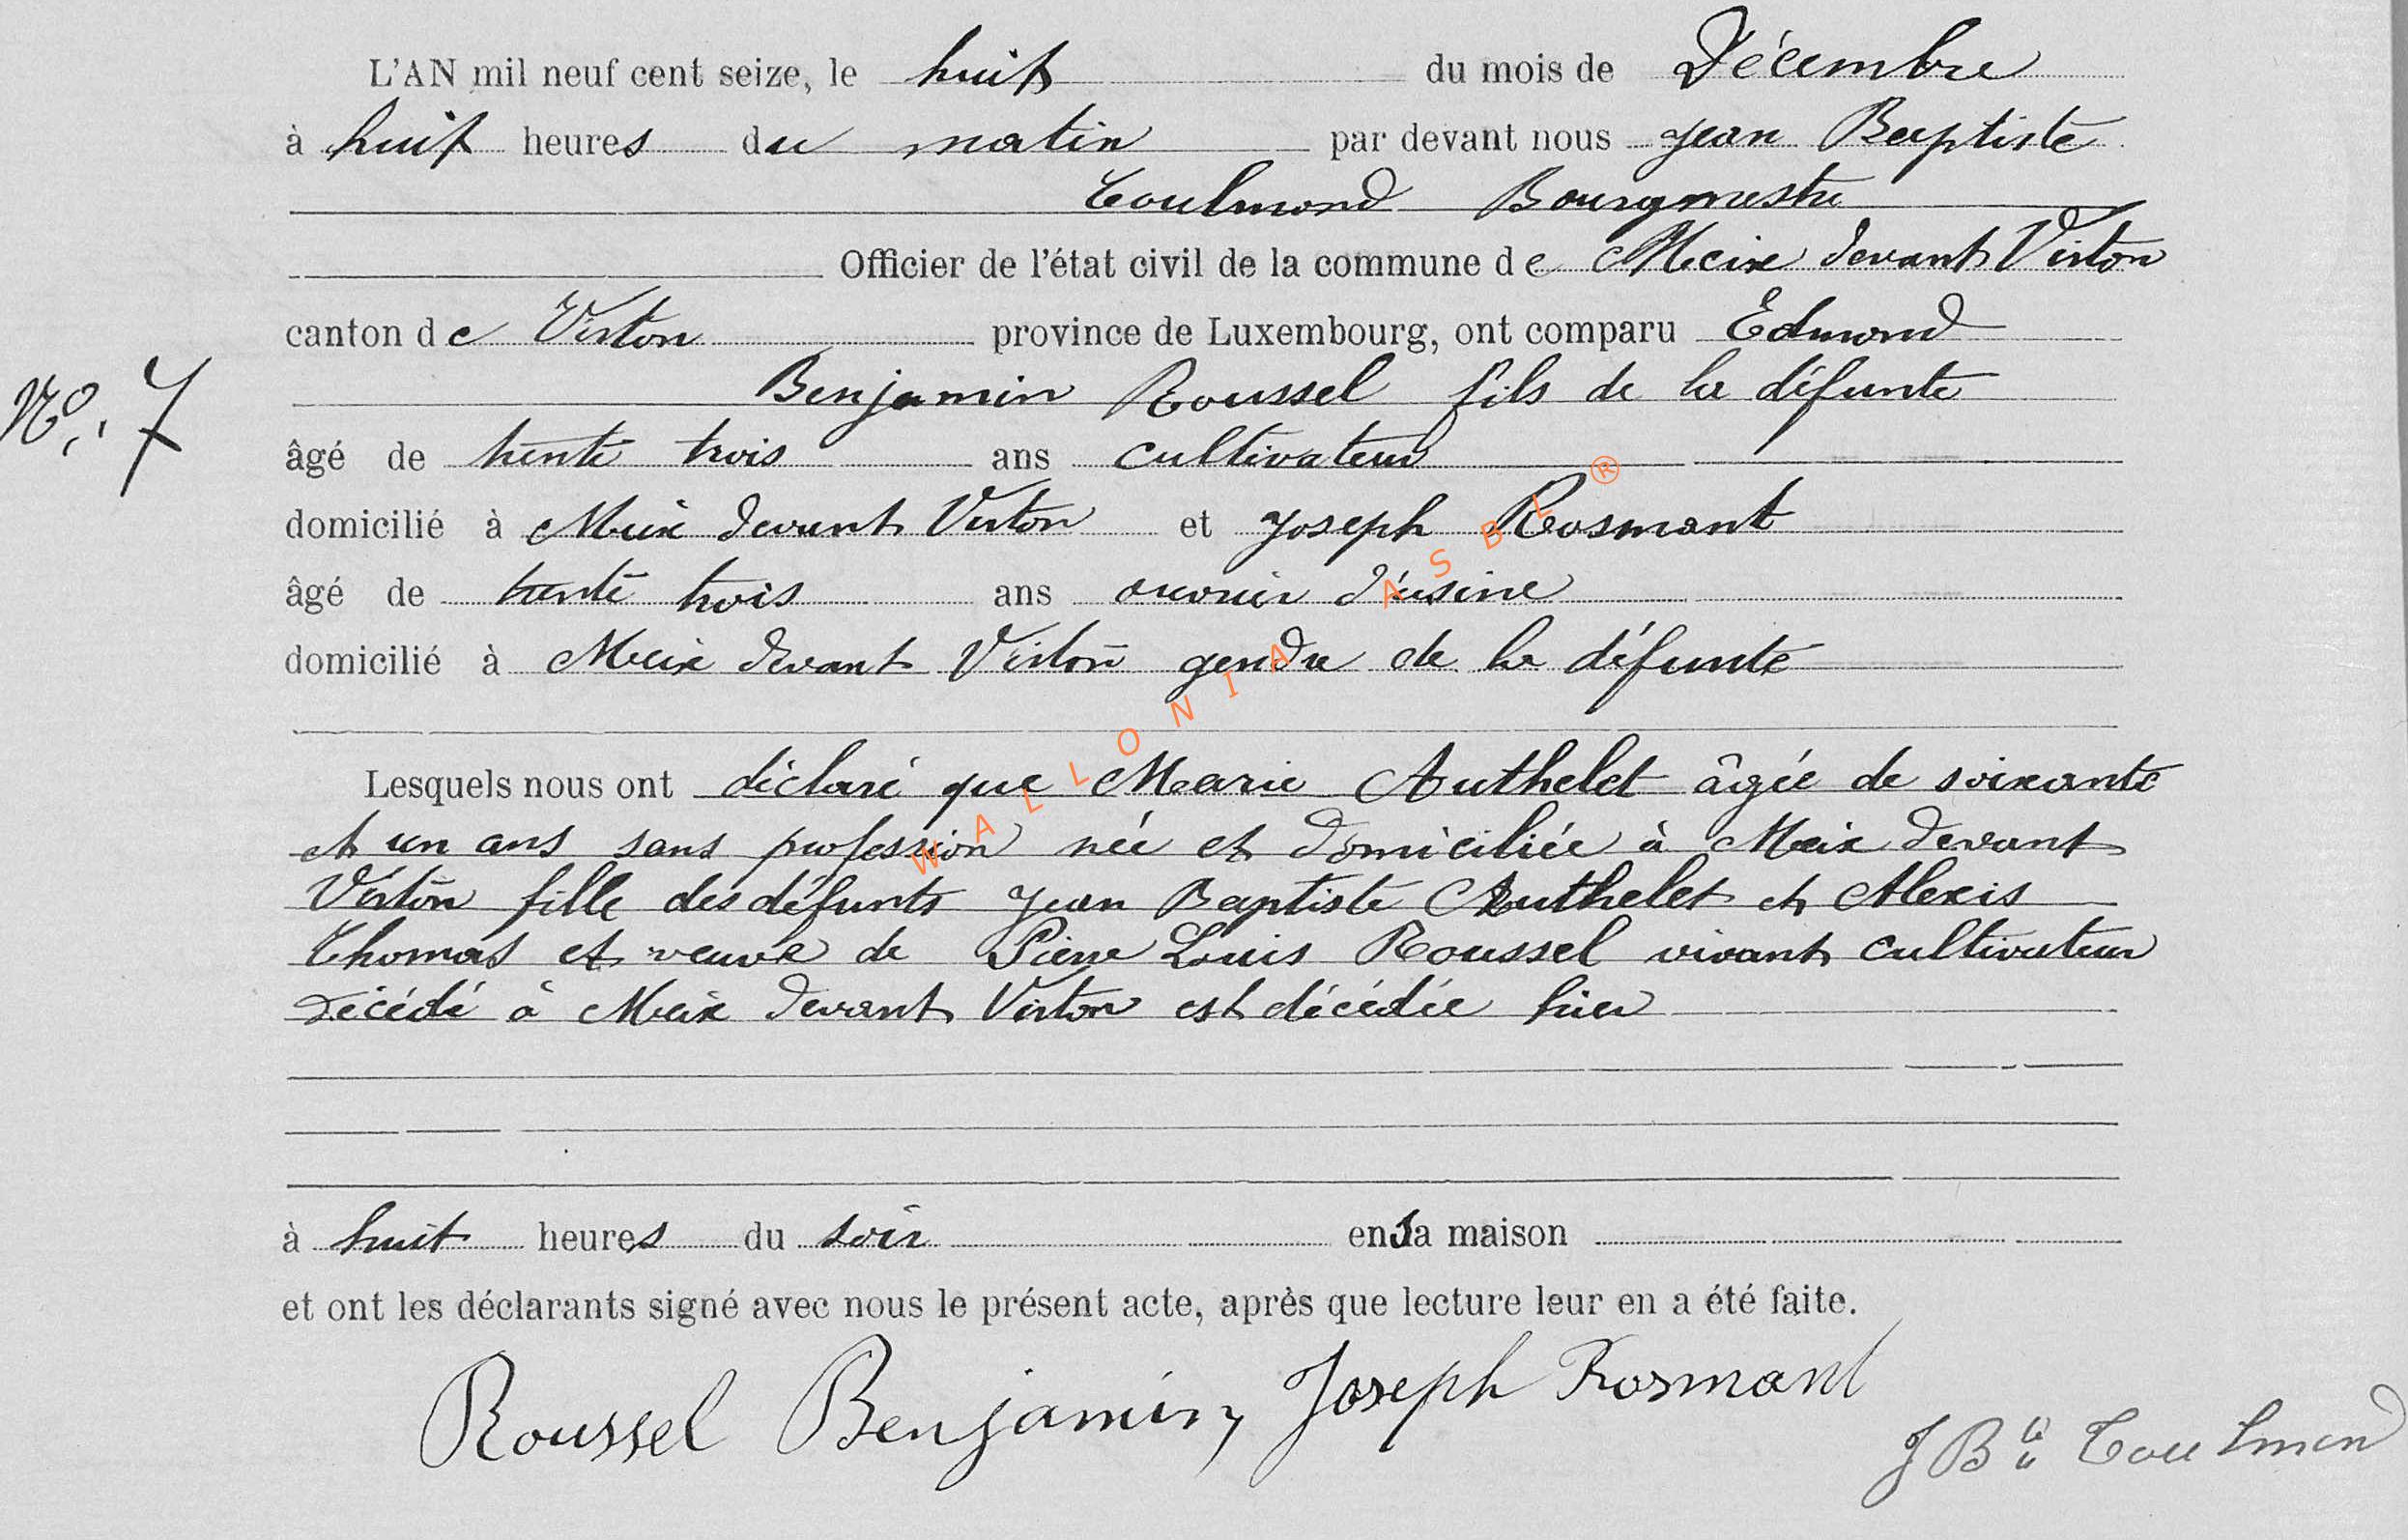 L'AN mil neuf cent seize, le huit du mois de Décembre
à huit heures du matin par devant nous Jean Baptiste
Toulmond Bourgmestre
Officier de l'état civil de la commune de Meix devant Virton
canton de Virton province de Luxembourg, ont comparu Edmond
Benjamin Roussel fils de la défunte
No: 7
âgé de trente trois ans cultivateur
domicilié à Meix devant Virton et Joseph Rosmant
âgé de trente trois ans ouvrier d'usine
domicilié à Meix devant Virton gendre de la défunte
Lesquels nous ont déclaré que Marie Authelet âgée de soixante
et un ans sans profession née et domiciliée à Meix devant
Virton fille des défunts Jean Baptiste Authelet et Alexis
Thomas et veuve de Pierre Louis Roussel vivant cultivateur
décédé à Meix devant Virton est décédée hier
à huit heures du soir en sa maison
et ont les déclarants signé avec nous le présent acte, après que lecture leur en a été faite.
Roussel Benjamin, Joseph Rosmant
J Bte Toulmond
WALLONIA ASBL ®